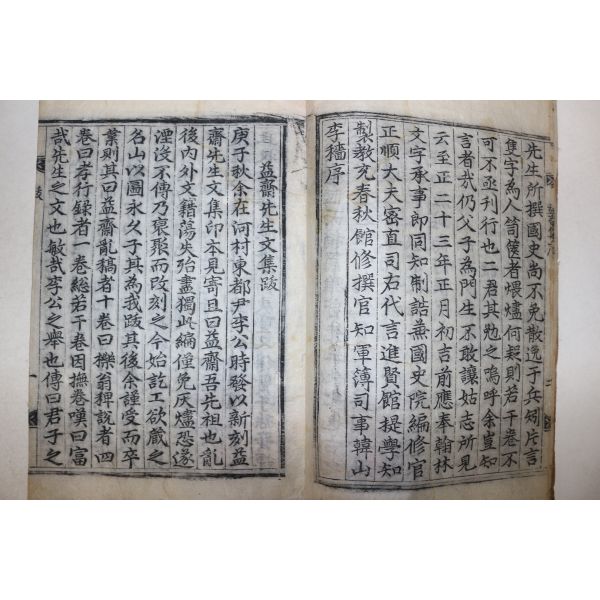 先生所撰國史尚不免散逸于兵矧片言
隻字為人笥篋者煨燼何疑則若干卷不
可不亟刊行也二君其勉之嗚呼余豈知
言者㢤仍父子為門生不敢讓姑志所見
云至正二十三年正月初吉前應奉翰林
文字承事郎同知制誥兼國史院編修官
正順大夫密直司右代言進賢館提學知
製教充春秋館修撰官知軍簿司事韓山
李穡序
益齋先生文集跋
庚子秋余在河村東都尹李公時發以新刻益
齋先生文集印本見寄且曰益齋吾先祖也亂
後內外文籍蕩失殆盡獨此編僅免灰爐恐遂
湮沒不傳乃裒聚而改刻之今始訖工欲藏之
名山以圖永久子其為我跋其後余謹受而卒
業則其曰益齋亂稿者十卷曰櫟翁稗說者四
卷曰孝行録者一卷総若干卷因撫卷嘆曰富
㢤先生之文也敏㢤李公之舉也傳曰君子之
跋
一
二